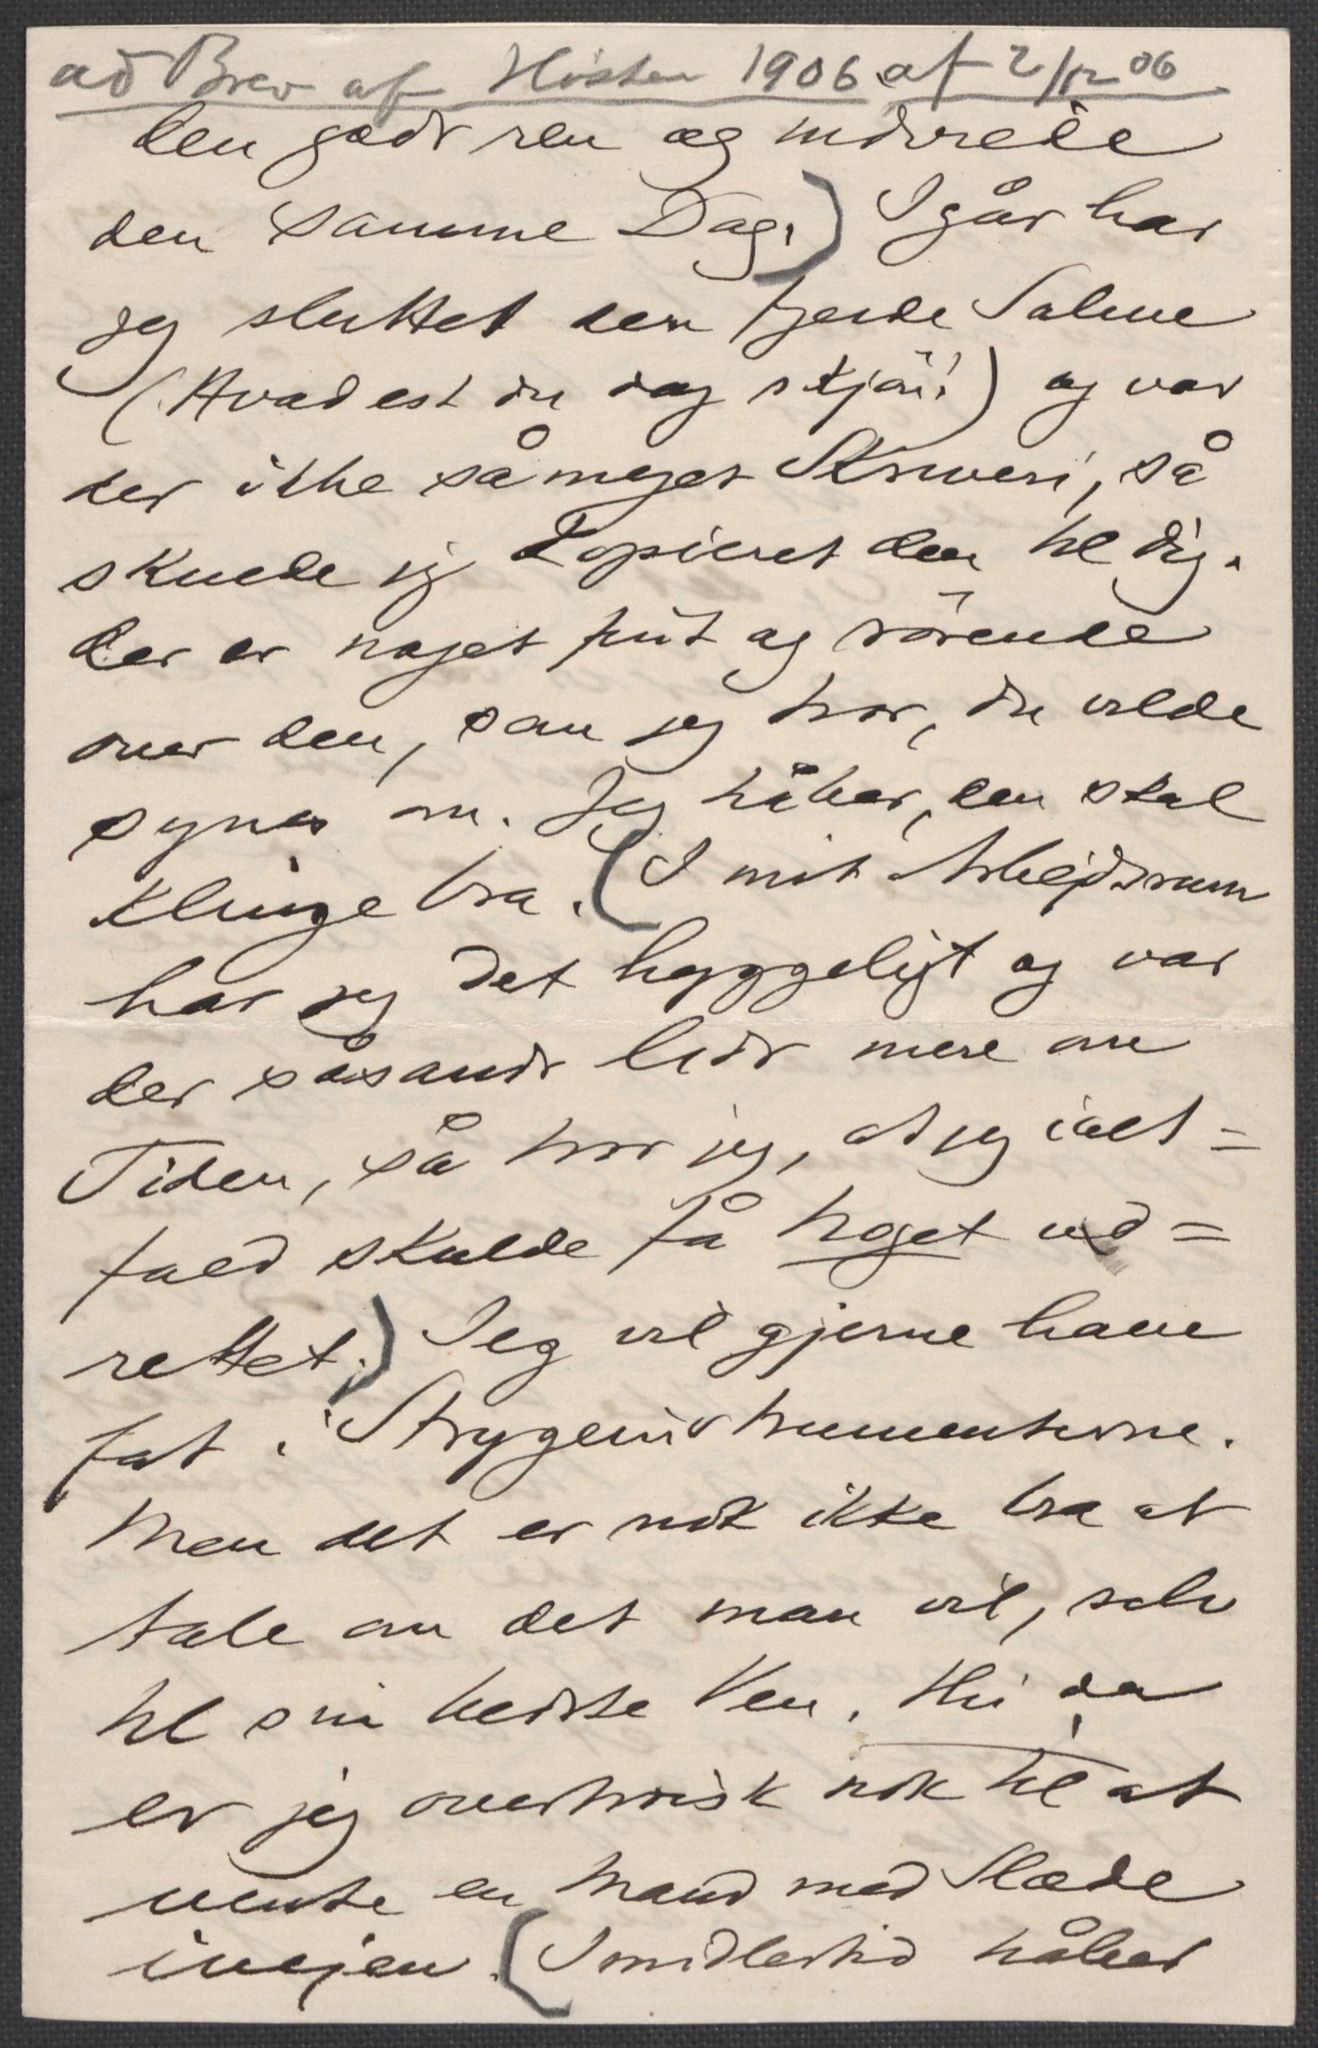 ad Brev af Høsten 1906 af 2/12 06
den godt ren og indviede
den samme Dag.) Igår har
jeg sluttet den fjerde Salme
(Hvad est du dog skjøn!) og var
der ikke såmeget Skriveri, så
skulde jeg kopieret den til dig.
der er noget fint og rörende
over den, som jeg tror, du vilde
synes om. Jeg håber, den skal
klinge bra. (I mit Arbejdsrum
har jeg det hyggeligt og var
der såsandt lidt mere om
Tiden, så tror jeg, at jeg ialt=
fald skulde få noget ud=
rettet.) Jeg vil gjerne have
fat i Strygeinstrumenterne.
Men det er nok ikke bra at
tale om det man vil, selv
til sin bedste Ven. Thi da
er jeg overtroisk nok til at
vente en Mand med Slæde
ivejen. (Imidlertid håber